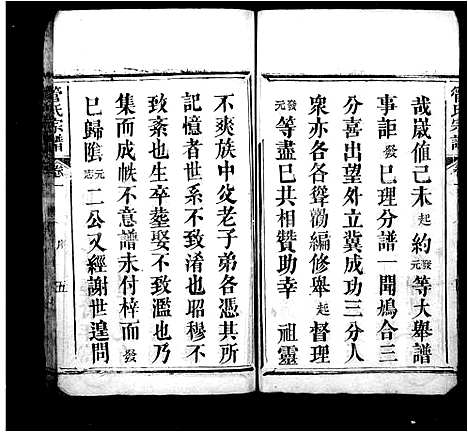 管氏宗譜
哉歲值己未起約發元等大舉譜
事詎發已理分譜一聞鳩合三
分喜出望外立冀成功三分人
衆亦各各聳勸編修舉起督理
發元等盡已共相贊助幸　祖靈
不爽族中父老子弟各憑其所
記憶者世次不致淆也昭穆不
致紊也生卒塟娶不致濫也乃
集而成帙不意譜未付梓而發
已歸陰元志二公又經謝世遑問
管氏宗譜
卷一
五